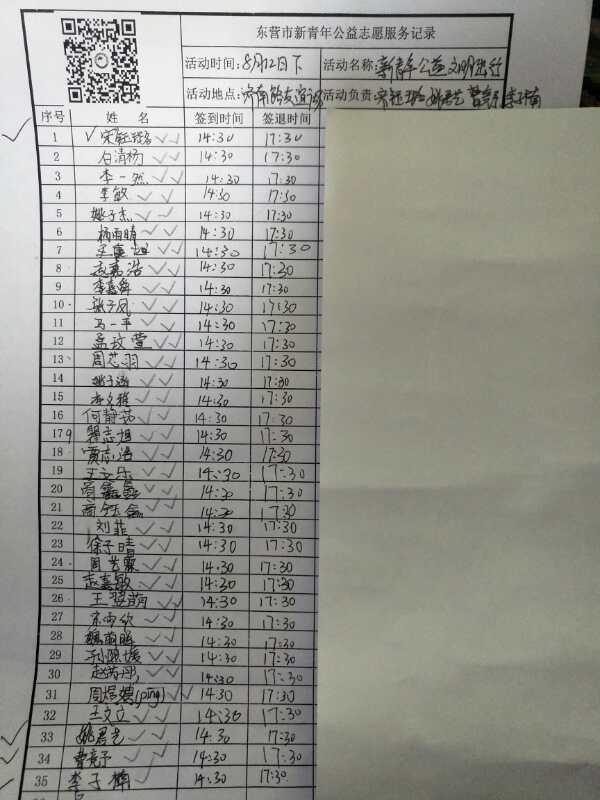 东营市新青年公益志愿服务记录
活动时间: 8月12日下 活动名称: 新青年公益文明出行
活动地点: 活动负责:
序号 姓名 签到时间 签退时间
1 14:30 17:30
2 石清杨 14:30 17:30
3 李一然 14:30 17:30
4 李敏 14:30 17:30
5 姚子杰 14:30 17:30
6 杨雨晴 14:30 17:30
7 14:30 17:30
8 孟嘉浩 14:30 17:30
9 14:30 17:30
10 张子凤 14:30 17:30
11 马一平 14:30 17:30
12 孟玟萱 14:30 17:30
13 周芯羽 14:30 17:30
14 姚子涵 14:30 17:30
15 14:30 17:30
16 何静茹 14:30 17:30
17 翟志旭 14:30 17:30
18 贾志浩 14:30 17:30
19 王文乐 14:30 17:30
20 14:30 17:30
21 14:30 17:30
22 刘菲 14:30 17:30
23 徐子晴 14:30 17:30
24 周艺霖 14:30 17:30
25 赵嘉敏 14:30 17:30
26 王翌萌 14:30 17:30
27 14:30 17:30
28 魏雨晖 14:30 17:30
29 14:30 17:30
30 14:30 17:30
31 周煜娉(ping) 14:30 17:30
32 王文立 14:30 17:30
33 姚君艺 14:30 17:30
34 曹竞予 14:30 17:30
35 李子楠 14:30 17:30